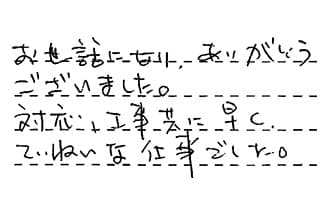 お世話になり、ありがとう
ございました。
対応、工事共に早く、
ていねいな仕事でした。